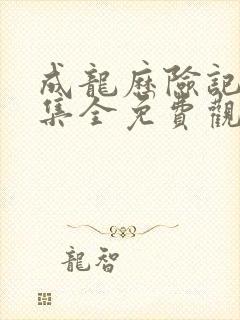 成龍歷險記
集全免費觀
龍智